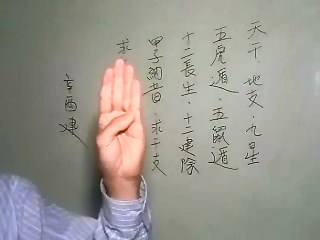 天干·地支·九星
五虎遁·五鼠遁
十二長生·十二建除
甲子納音·求干支
求
辛酉建